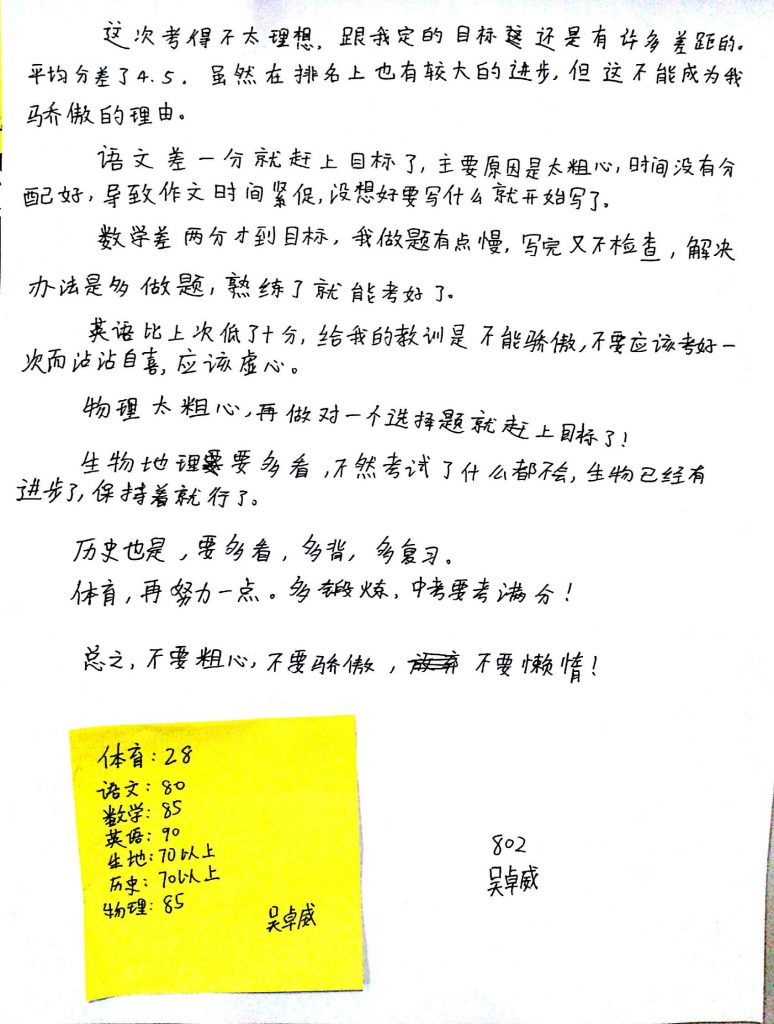 这次考得不太理想，跟我定的目标还是有许多差距的。
平均分差了4.5．虽然在排名上也有较大的进步，但这不能成为我
骄傲的理由。
语文差一分就赶上目标了，主要原因是太粗心，时间没有分
配好，导致作文时间紧促，没想好要写什么就开始写了。
数学差两分才到目标，我做题有点慢，写完又不检查，解决
办法是多做题，熟练了就能考好了。
英语比上次低了十分，给我的教训是不能骄傲，不要应该考好一
次而沾沾自喜，应该虚心。
物理太粗心，再做对一个选择题就赶上目标了！
生物地理要多看，不然考试了什么都不会，生物已经有
进步了，保持着就行了。
历史也是，要多看，多背，多复习。
体育，再努力一点。多锻炼，中考要考满分！
总之，不要粗心，不要骄傲，不要懒惰！
体育：28
语文：80
数学：85
英语：90
生地：70以上
历史：70以上
物理：85
吴卓威
802
吴卓威